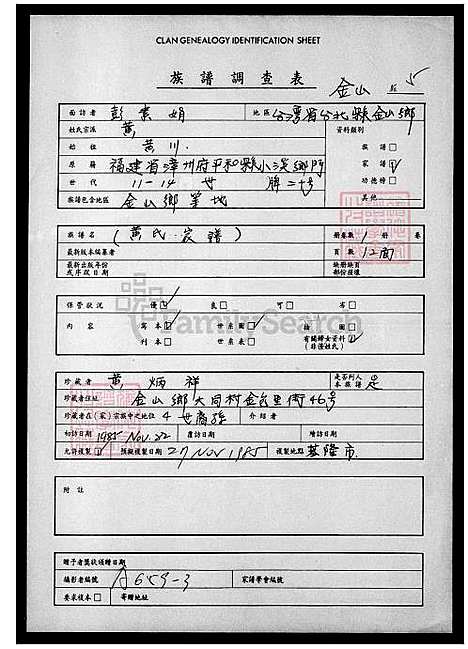 CLAN GENEALOGY IDENTIFICATION SHEET
族譜調查表
金山 5
面訪者 彭素娟 地區 台灣省台北縣金山鄉
姓氏宗派 黃 資料類別
始位 黃川 族譜 □
原籍 福建省漳州府平和縣小溪鄉 家譜 ☑
世代 11-14世 牌二十号 功德榜 □
族譜包含地區 金山鄉等地 其他
族譜名 (黃氏家譜) 冊卷數 1 冊 卷
最新版本編纂者 頁數 12
最新出版年份 缺冊缺頁
或序跋日期 部份描種
保管狀況 優 ☑ 良 □ 可 □ 劣 □
內容 寫本 ☑ 世系圖 ☑ 插圖 □
刊本 □ 世系表 □ 有關婦女資料 ☑
(非僅姓氏)
FamilySearch
珍藏者 黃炳祥 是否列入本族譜 是
珍藏者住址 金山鄉大同村金包里街46号
珍藏者在(家)宗族中之地位 4世裔孫 介紹者
初訪日期 1985 Nov. 22 覆訪日期 增訪日期
允許複製 ☑ 預擬複製日期 27 Nov 1985 複製地點 基隆市.
附註
贈予者獎狀頒贈日期
攝影者編號 A659-3 家譜學會編號
要求複本 □ 寄贈地址